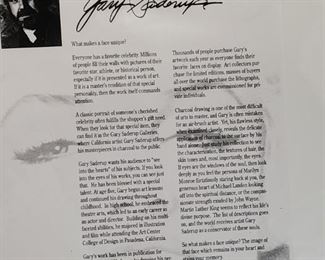 Gary Saderup
What makes a face unique?
Everyone has a favorite celebrity. Millions
of people fill their walls with pictures of their
favorite star, athlete, or historical person,
especially if it is presented as a work of art.
If it is a master's rendition of that special
personality, then the work itself commands
attention.
A classic portrait of someone's cherished
celebrity often fulfills the shopper's gift need.
When they look for that special item, they
can find it in the Gary Saderup Galleries,
where California artist Gary Saderup offers
his masterpieces in charcoal to the public.
Gary Saderup wants his audience to "see
into the hearts" of his subjects. If you look
into the eyes of his works, you can see just
that. He has been blessed with a special
talent. At age five, Gary began art lessons
and continued his drawing throughout
childhood. In high school, he embraced the
theater arts, which led to an early career as
an actor and director. Building on his multi-
faceted abilities, he majored in illustration
and film while attending the Art Center
College of Design in Pasadena, California.
Gary's work has been in publication for
Thousands of people purchase Gary's
artwork each year as everyone finds their
favorite faces on display. Art collectors pur-
chase the limited editions, masses of buyers
all over the world purchase the lithographs,
and special works are commissioned for pri-
vate individuals.
Charcoal drawing is one of the most difficult
of arts to master, and Gary is often mistaken
for an air-brush artist. Yet, his flawless style,
when examined closely, reveals the delicate
application of charcoal to the surface by his
hand alone. Just study his collection to see
the characterization, the textures of hair, the
skin tones and, most importantly, the eyes.
If eyes are the windows of the soul, then look
deeply as you feel the persona of Marilyn
Monroe flirtatiously staring back at you, the
generous heart of Michael Landon looking
off into the spiritual distance, or the compas-
sionate strength created by John Wayne.
Martin Luther King seems to reflect his life's
divine purpose. The list of descriptions goes
on, and the world receives artist Gary
Saderup as a conservator of these souls.
So what makes a face unique? The image of
that face which remains in your heart and
stirs your memory.